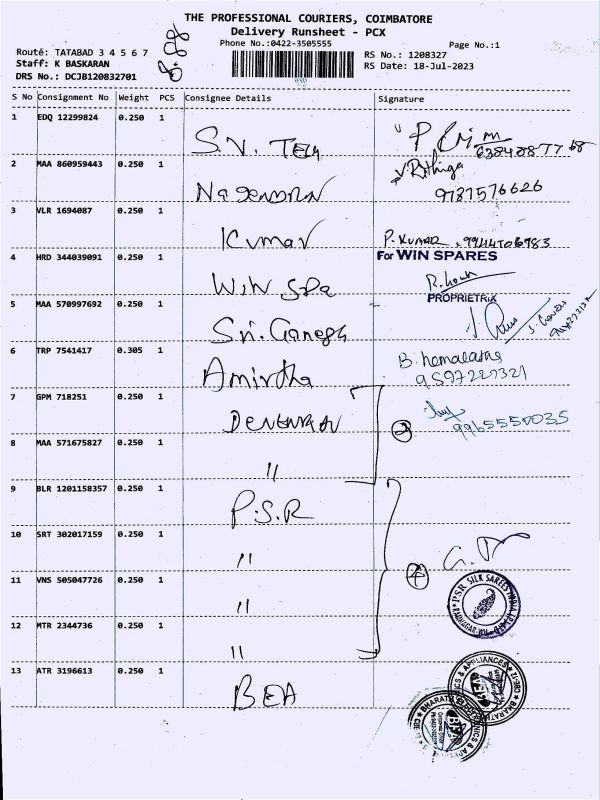 THE PROFESSIONAL COURIERS, COIMBATORE
Delivery Runsheet - PCX
Phone No.:0422-3505555
Page No.:1
Routé: TATABAD 3 4 5 6 7
Staff: K BASKARAN
DRS No.: DCJB120832701
RS No.: 1208327
RS Date: 18-Jul-2023
S No Consignment No Weight PCS Consignee Details Signature
1 EDQ 12299824 0.250 1 S.V. TECH
2 MAA 860959443 0.250 1 NAGENDRAN 9787576626
3 VLR 1694087 0.250 1 Kumar P. KUMAR
4 HRD 344039091 0.250 1 WIN SPA For WIN SPARES
PROPRIETRIX
5 MAA 570997692 0.250 1 Sri. Ganesh
6 TRP 7541417 0.305 1 Amirtha B. hemalatha
9597227321
7 GPM 718251 0.250 1 2 9965550035
8 MAA 571675827 0.250 1 "
9 BLR 1201158357 0.250 1 P.S.R
10 SRT 302017159 0.250 1 "
11 VNS 505047726 0.250 1 " 4
12 MTR 2344736 0.250 1 "
13 ATR 3196613 0.250 1 BEA